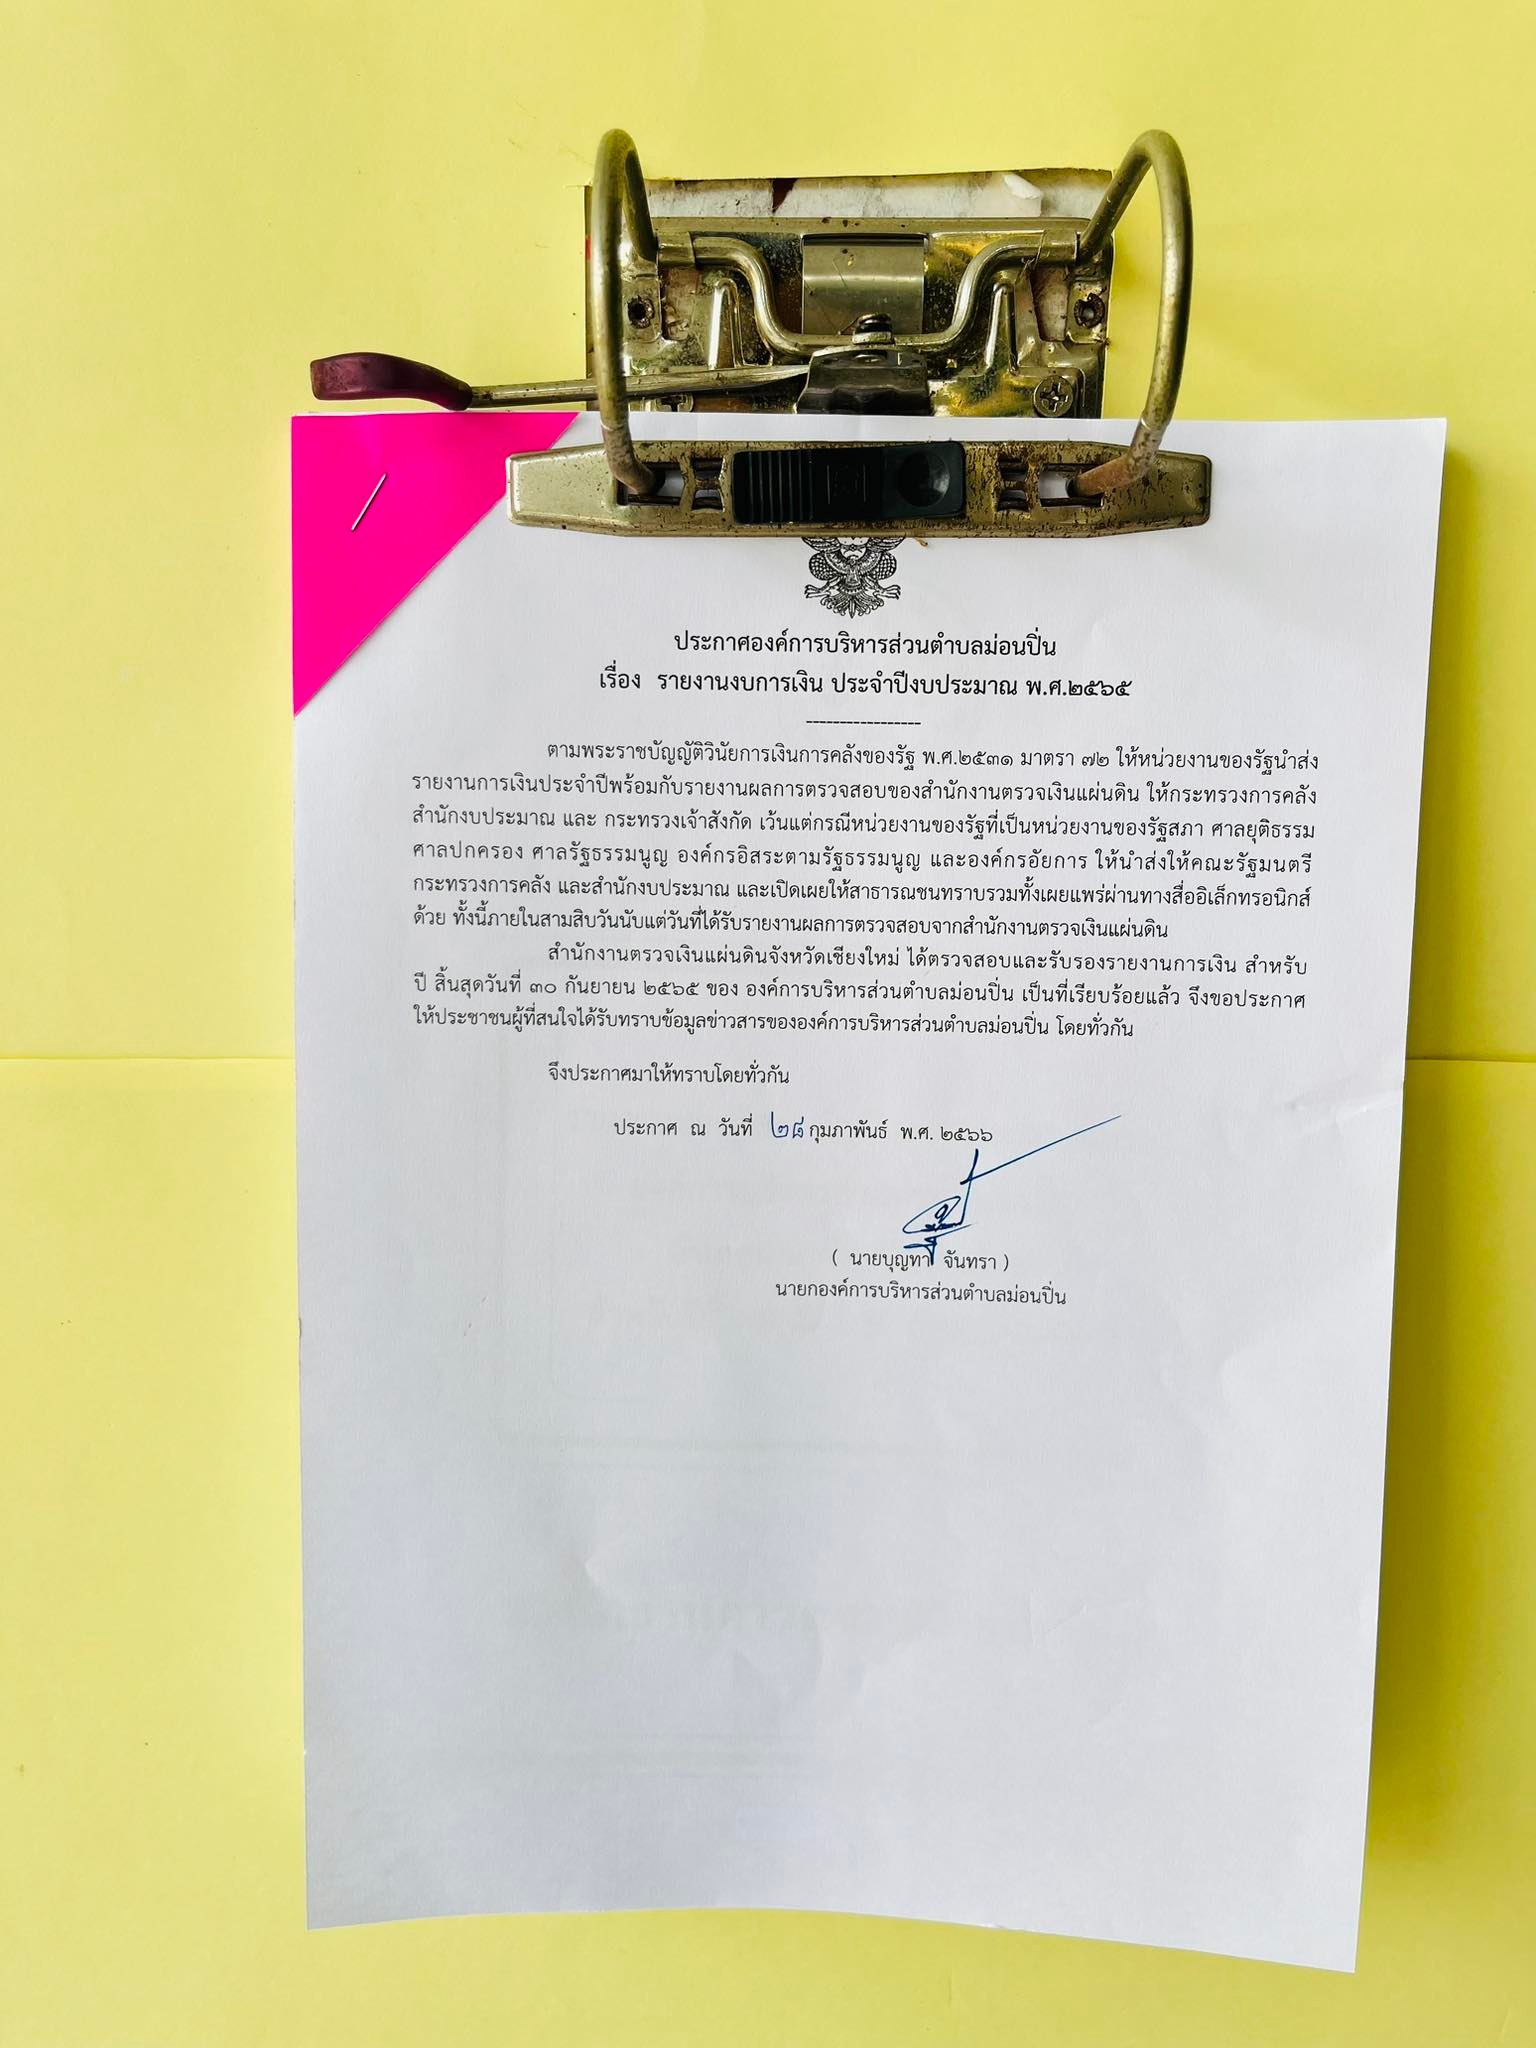 ประกาศองค์การบริหารส่วนตำบลม่อนปิ่น
เรื่อง รายงานงบการเงิน ประจำปีงบประมาณ พ.ศ.๒๕๖๕
-----------------
ตามพระราชบัญญัติวินัยการเงินการคลังของรัฐ พ.ศ.๒๕๓๑ มาตรา ๗๒ ให้หน่วยงานของรัฐนำส่ง
รายงานการเงินประจำปีพร้อมกับรายงานผลการตรวจสอบของสำนักงานตรวจเงินแผ่นดิน ให้กระทรวงการคลัง
สำนักงบประมาณ และ กระทรวงเจ้าสังกัด เว้นแต่กรณีหน่วยงานของรัฐที่เป็นหน่วยงานของรัฐสภา ศาลยุติธรรม
ศาลปกครอง ศาลรัฐธรรมนูญ องค์กรอิสระตามรัฐธรรมนูญ และองค์กรอัยการ ให้นำส่งให้คณะรัฐมนตรี
กระทรวงการคลัง และสำนักงบประมาณ และเปิดเผยให้สาธารณชนทราบรวมทั้งเผยแพร่ผ่านทางสื่ออิเล็กทรอนิกส์
ด้วย ทั้งนี้ภายในสามสิบวันนับแต่วันที่ได้รับรายงานผลการตรวจสอบจากสำนักงานตรวจเงินแผ่นดิน
สำนักงานตรวจเงินแผ่นดินจังหวัดเชียงใหม่ ได้ตรวจสอบและรับรองรายงานการเงิน สำหรับ
ปี สิ้นสุดวันที่ ๓๐ กันยายน ๒๕๖๕ ของ องค์การบริหารส่วนตำบลม่อนปิ่น เป็นที่เรียบร้อยแล้ว จึงขอประกาศ
ให้ประชาชนผู้ที่สนใจได้รับทราบข้อมูลข่าวสารขององค์การบริหารส่วนตำบลม่อนปิ่น โดยทั่วกัน
จึงประกาศมาให้ทราบโดยทั่วกัน
ประกาศ ณ วันที่ ๒๘ กุมภาพันธ์ พ.ศ. ๒๕๖๖
( นายบุญทา จันทรา )
นายกองค์การบริหารส่วนตำบลม่อนปิ่น